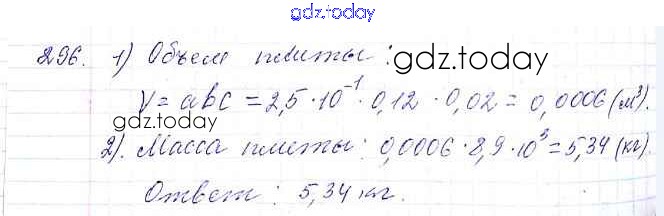 gdz.today
296. 1) Объем плиты:
gdz.today
V = abc = 2,5 · 10⁻¹ · 0,12 · 0,02 = 0,0006 (м³).
gdz.today
2). Масса плиты: 0,0006 · 8,9 · 10³ = 5,34 (кг).
Ответ: 5,34 кг.